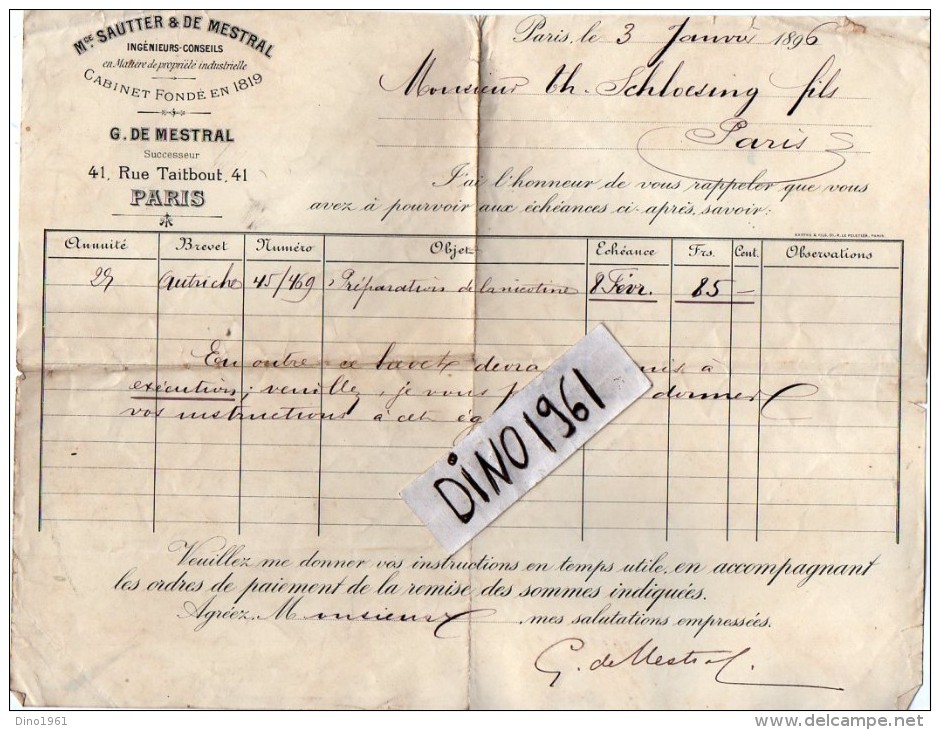 Mon SAUTTER & DE MESTRAL
INGÉNIEURS-CONSEILS
en Matière de propriété industrielle
CABINET FONDÉ EN 1819
G. DE MESTRAL
Successeur
41, Rue Taitbout, 41
PARIS
Paris, le 3 Janvier 1896
Monsieur th. Schloesing fils
Paris
J'ai l'honneur de vous rappeler que vous
avez à pourvoir aux échéances ci-après, savoir:
Annuité Brevet Numéro Objet Echéance Frs. Cent. Observations
Autriche 45/469 Préparation de la nicotine 8 Févr. 85 —
En outre ce brevet devra à
exécution; veuillez, je vous donner
vos instructions à cet
DINO 1961
Veuillez me donner vos instructions en temps utile, en accompagnant
les ordres de paiement de la remise des sommes indiquées.
Agréez, Monsieur, mes salutations empressées.
G. de Mestral
Dino1961
www.delcampe.net